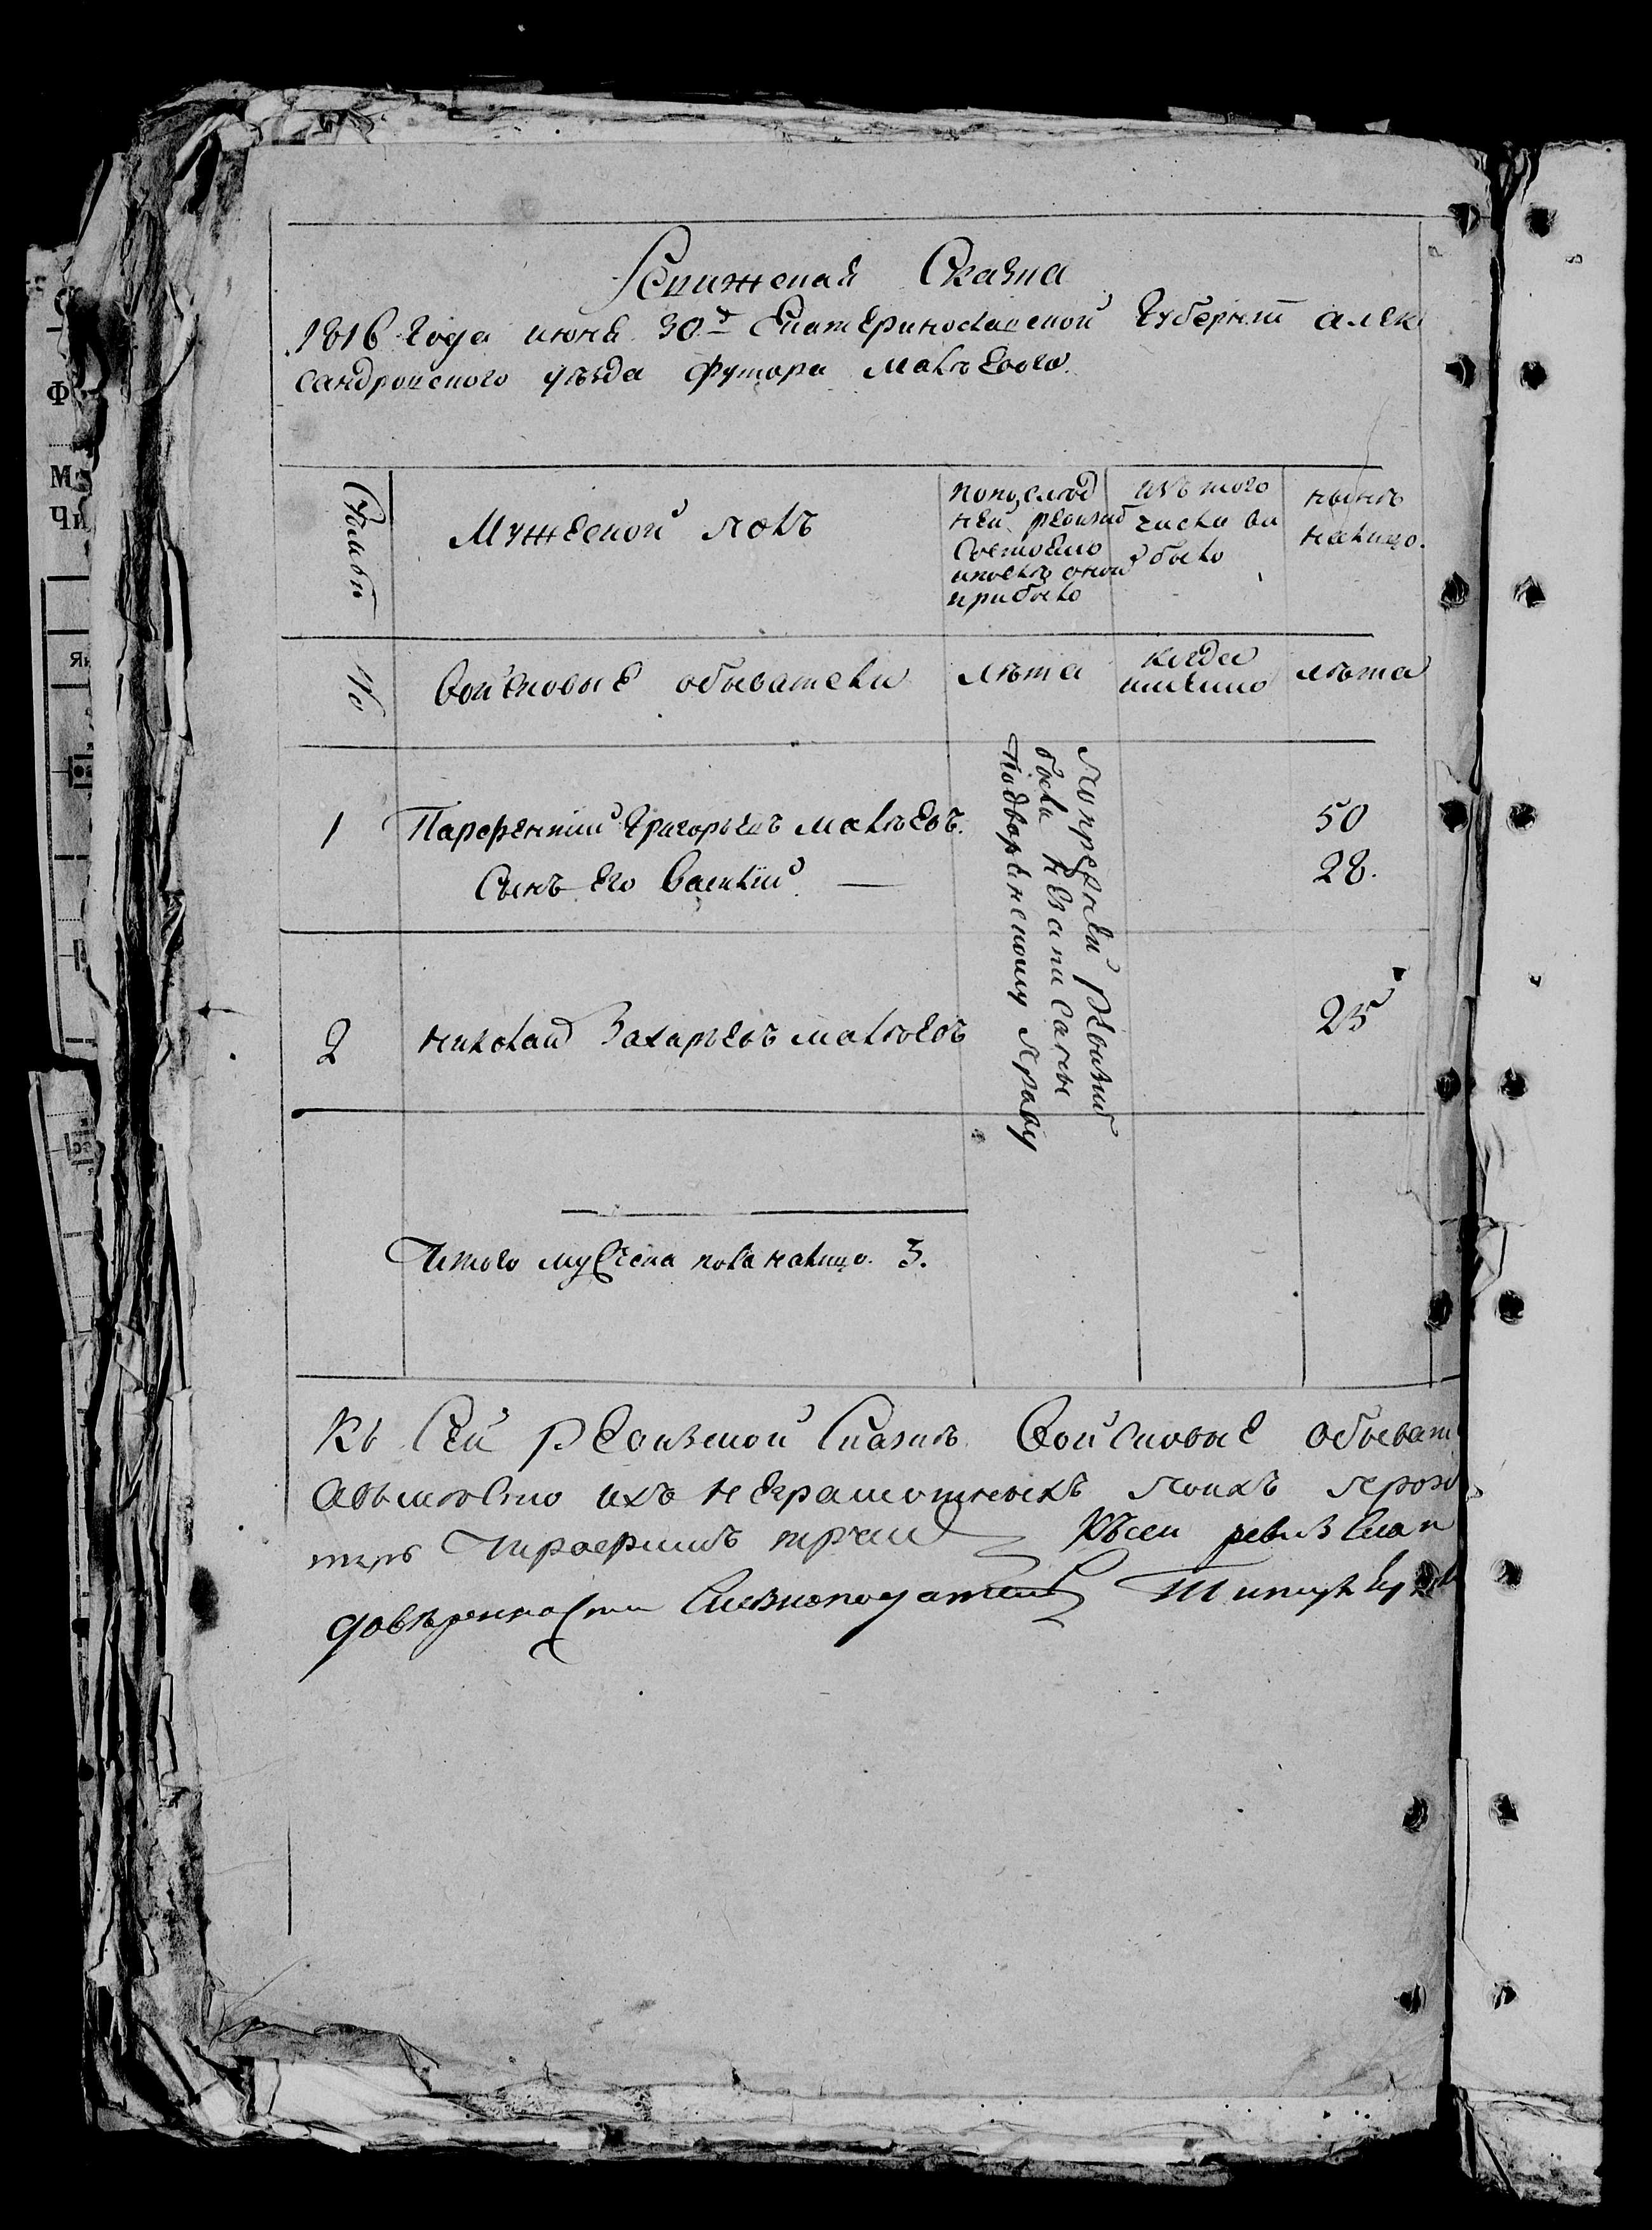 Ревижская Сказка
1816 года июня 30го Екатеринославской Губернии алек
сандровского уѣзда футора малѣевого.
Семьи
Мужеской полъ
попослѣд
ней ревизіи
Состояло
ипослѣ оной
прибыло
изъ того
числа вы
было
нынѣ
налицо.
№
Войсковые обыватели
лѣта
когда
именно
лѣта
1
Парфентий Григорьевъ малѣевъ.
50
Сынъ Его Василий —
28.
Попрежней ревизии
были незаписаны
Подворянскому праву
2
николай Захарьевъ малѣевъ
25
Итого мужеска пола налицо. 3.
Къ Сей ревизской Сказкѣ Войсковые обыват
авместо ихъ неграмотныхъ поихъ прозь
Късеи ревиз Сказк
довѣренности